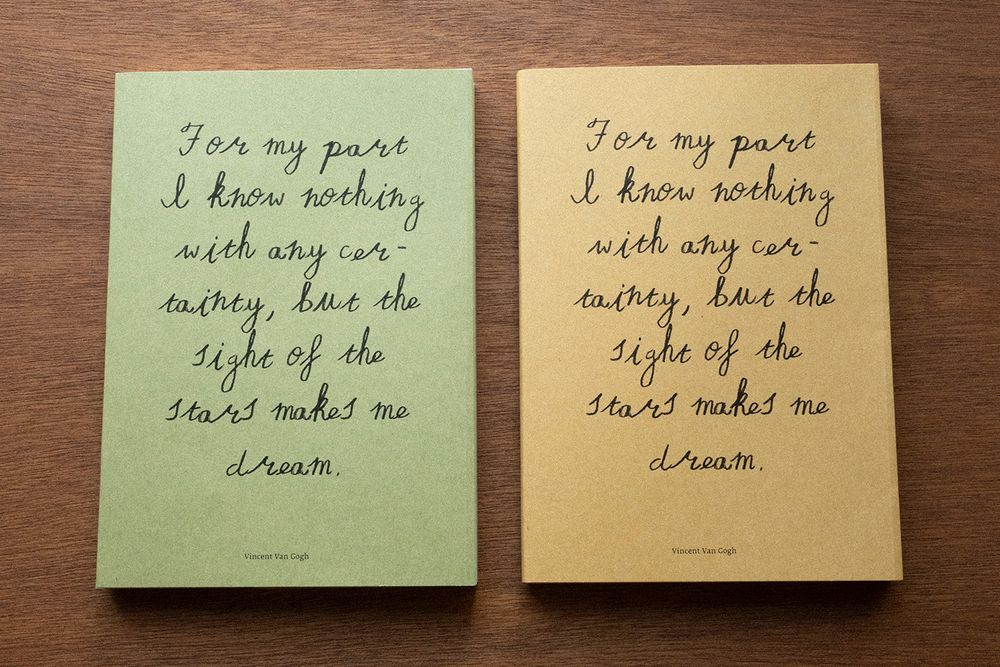 For my part
I know nothing
with any cer-
tainty, but the
sight of the
stars makes me
dream.
Vincent Van Gogh
For my part
I know nothing
with any cer-
tainty, but the
sight of the
stars makes me
dream.
Vincent Van Gogh